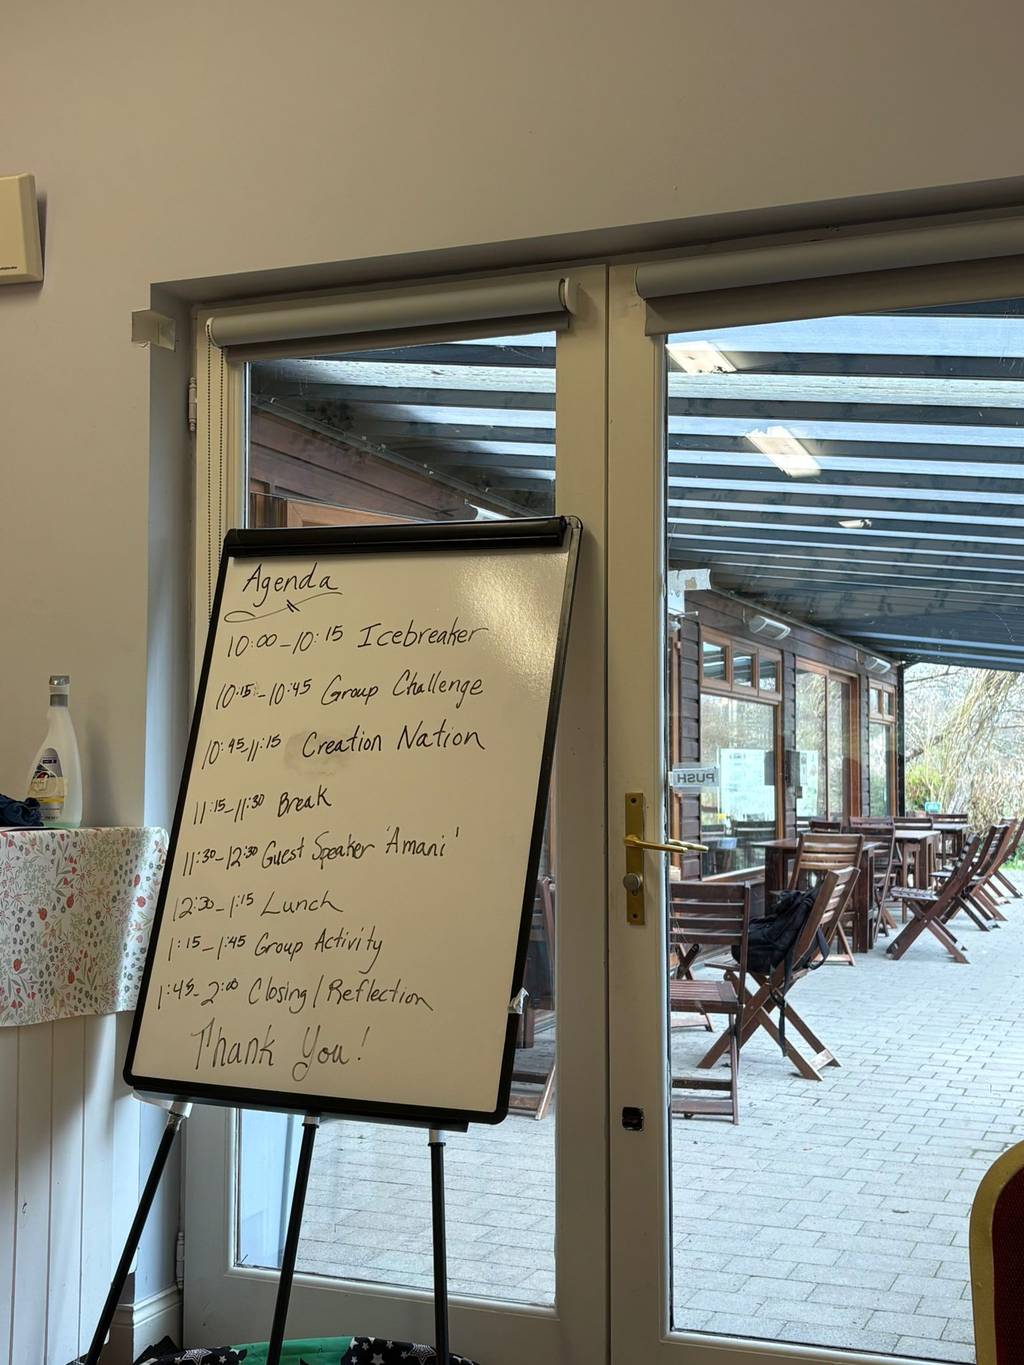 Agenda
10:00-10:15 Icebreaker
10:15-10:45 Group Challenge
10:45-11:15 Creation Nation
11:15-11:30 Break
11:30-12:30 Guest Speaker 'Amani'
12:30-1:15 Lunch
1:15-1:45 Group Activity
1:45-2:00 Closing/Reflection
Thank You!
PUSH